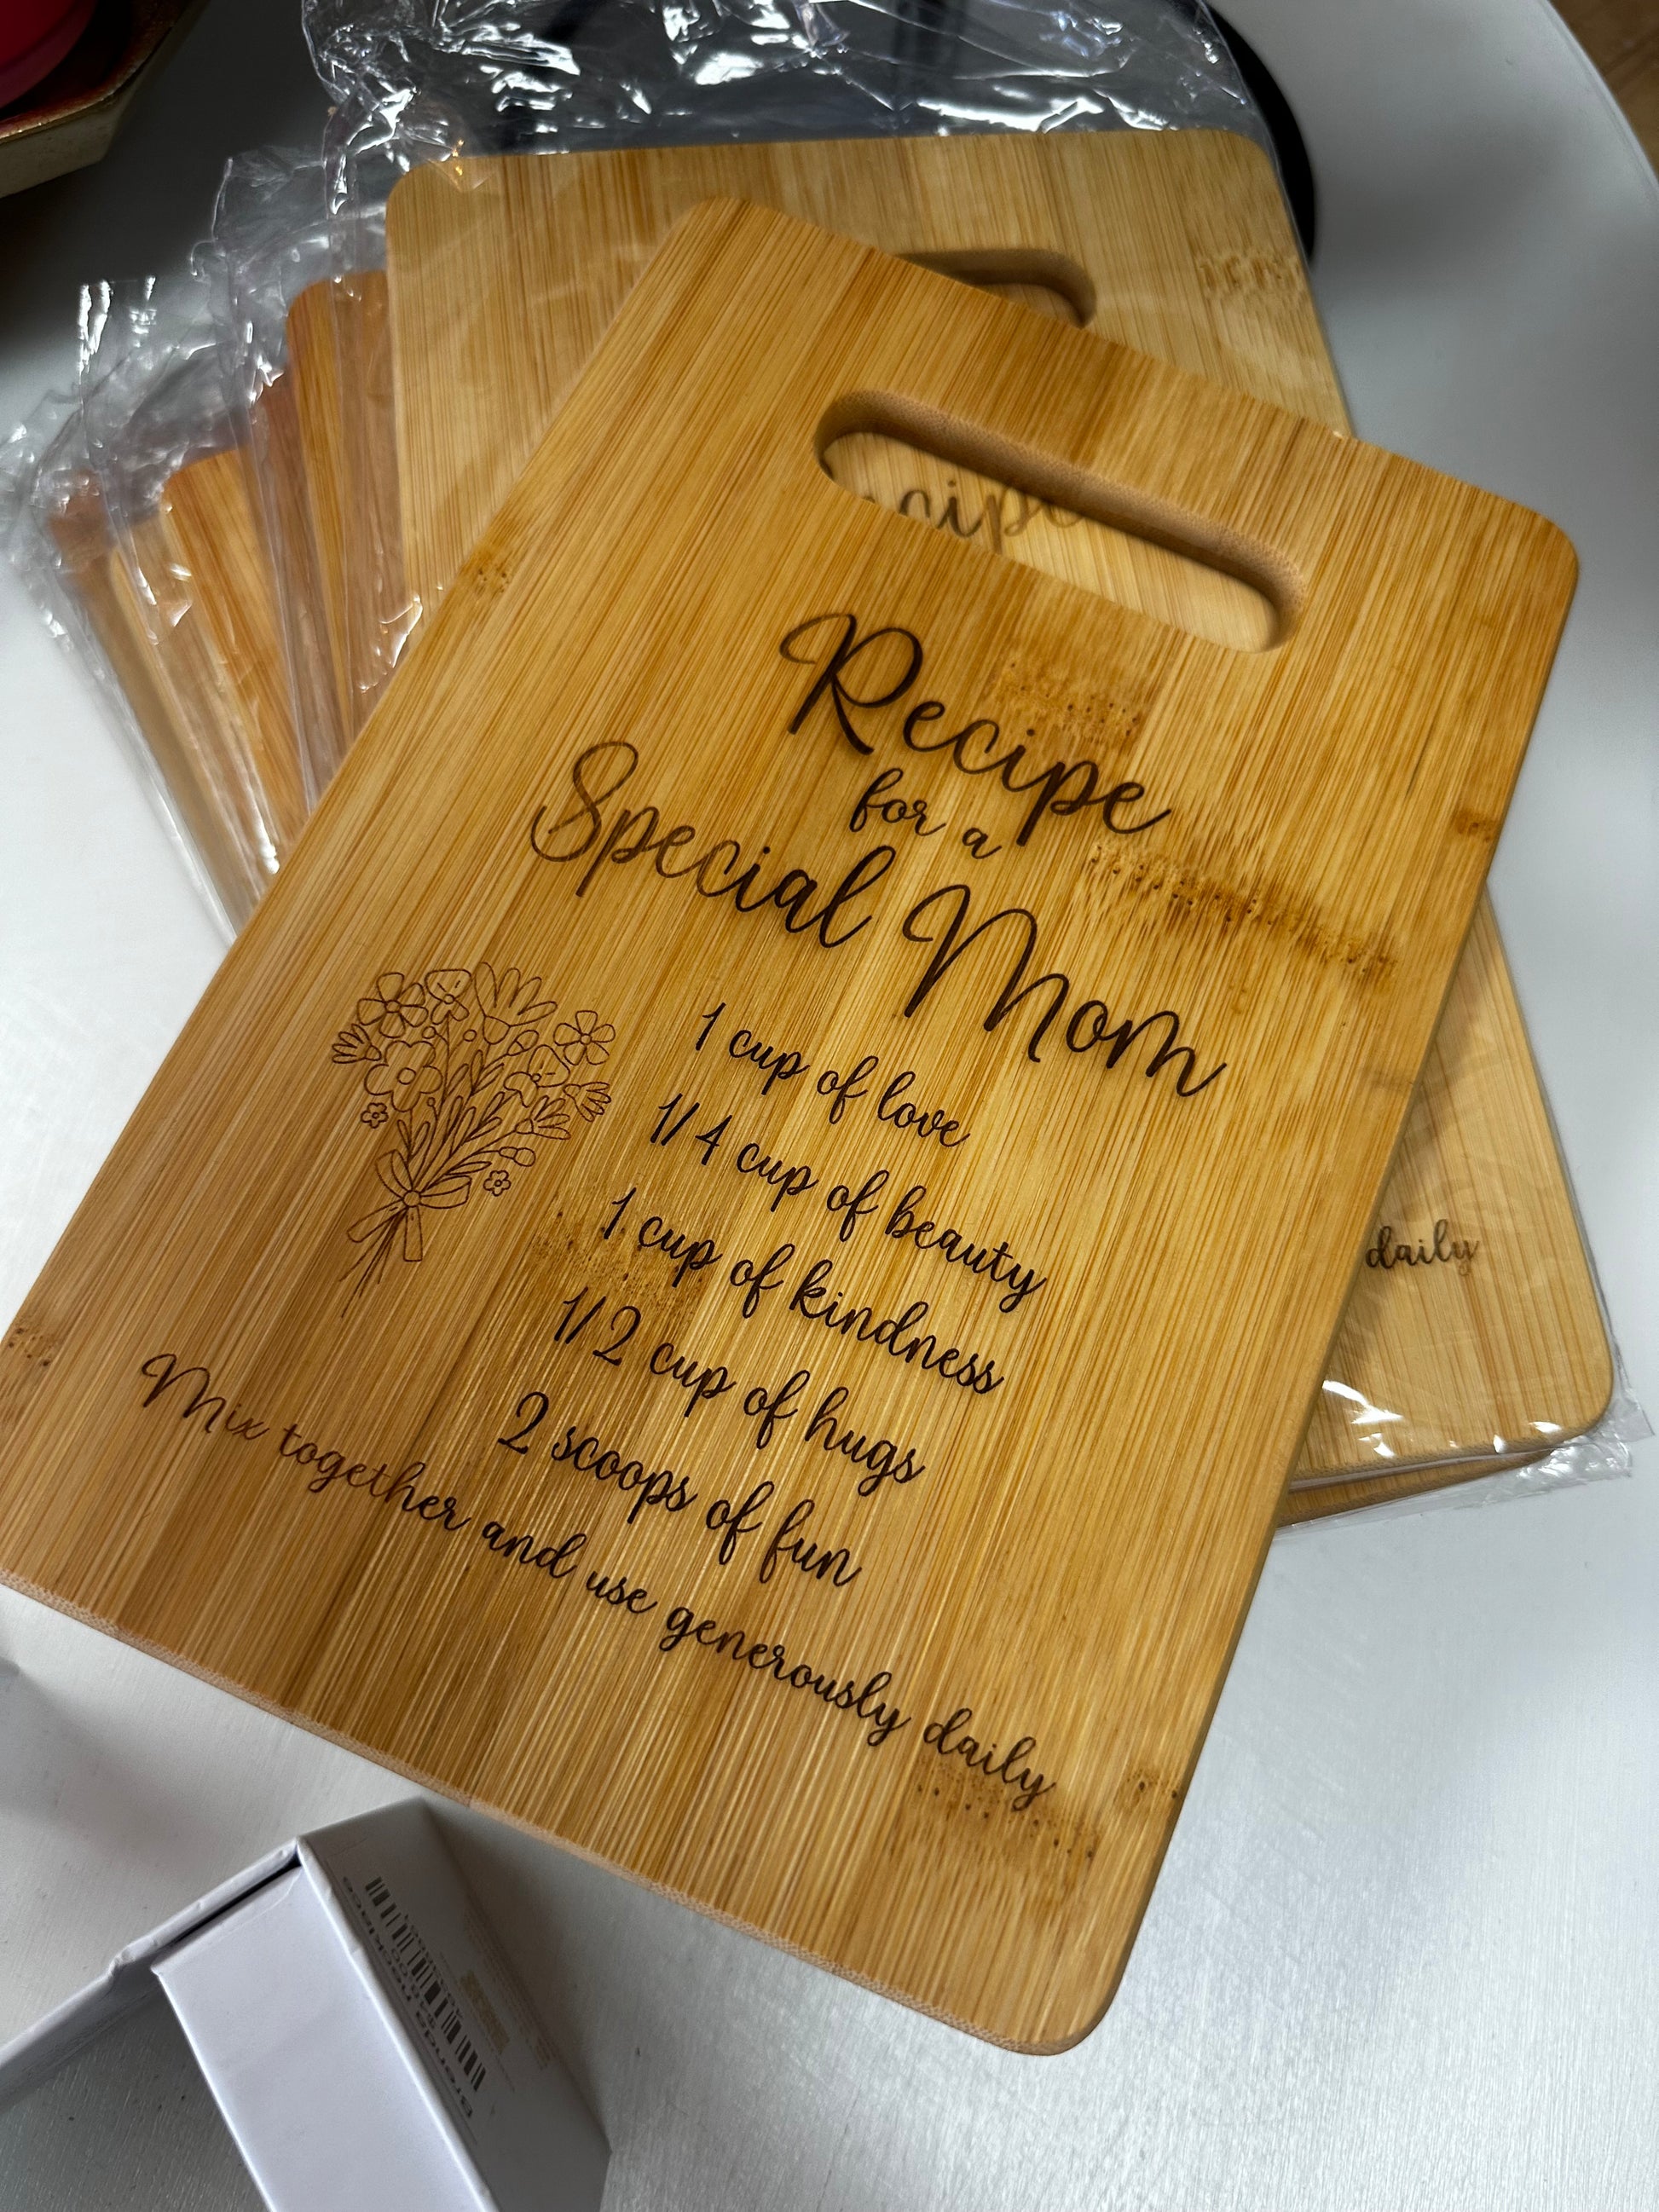 cipe
Recipe
for a
Special Mom
1 cup of love
1/4 cup of beauty
1 cup of kindness
1/2 cup of hugs
2 scoops of fun
Mix together and use generously daily
daily
Brenda necklace